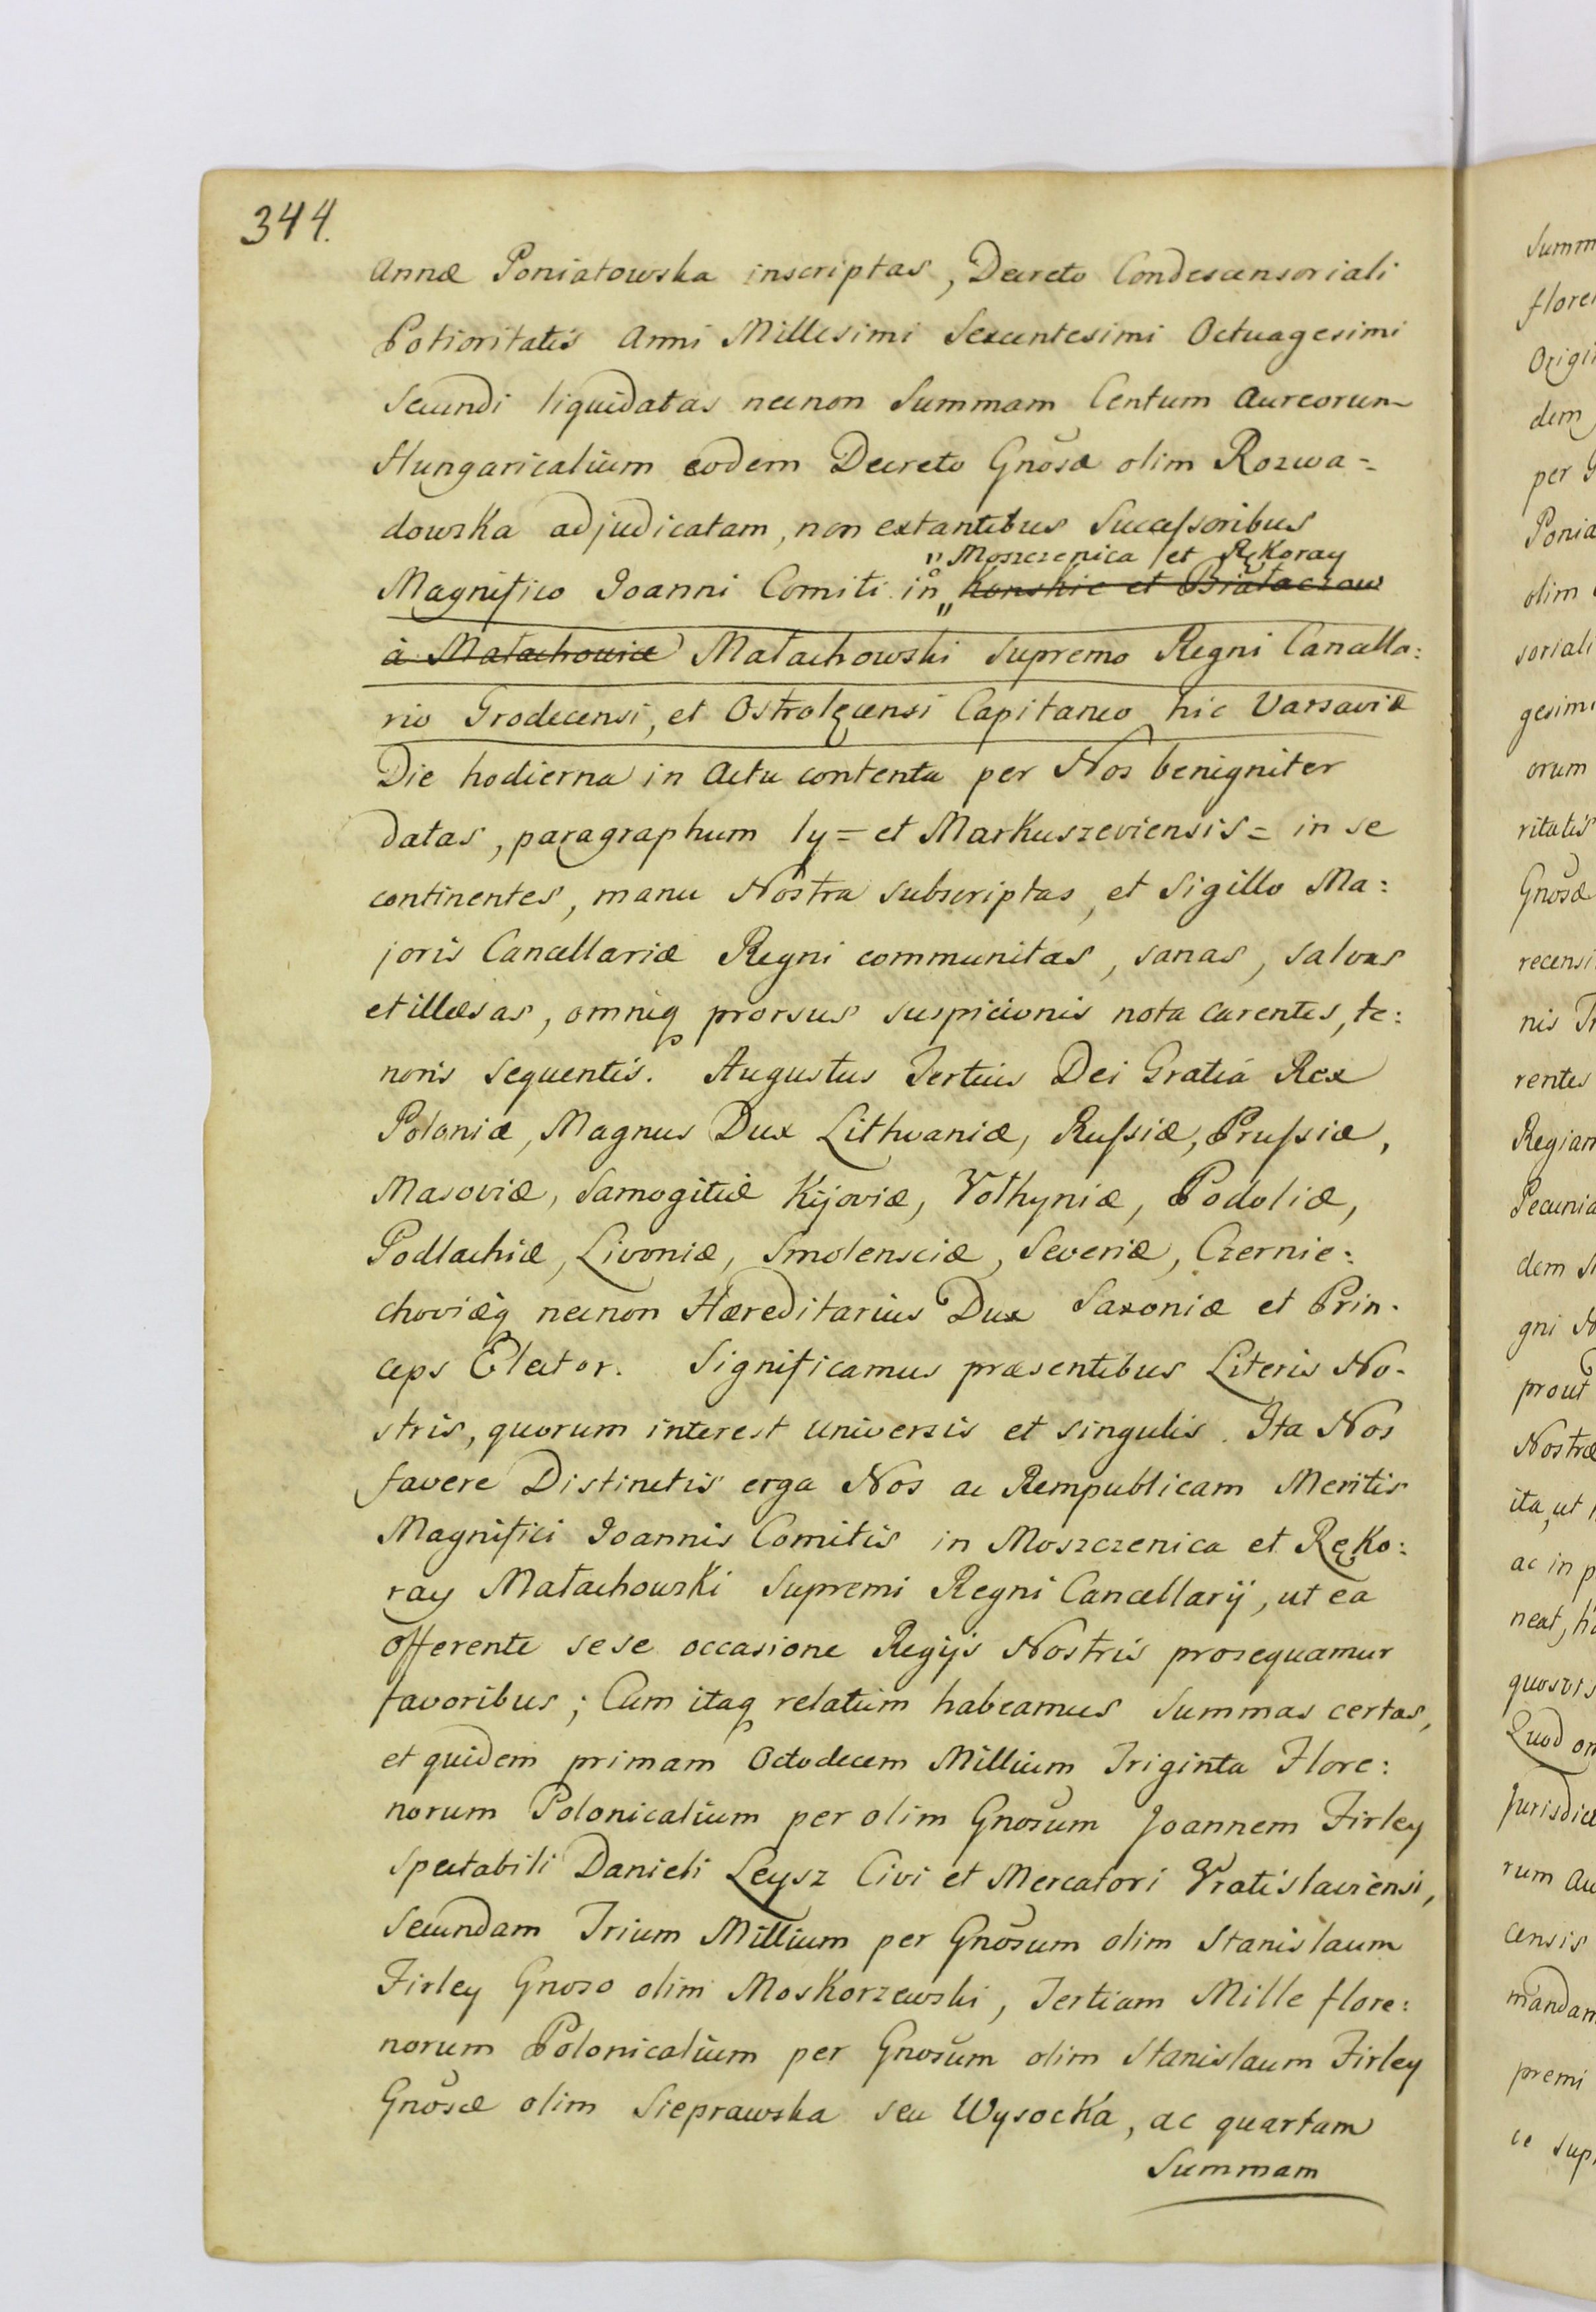 344.
Annæ Poniatowska inscriptas, Decreto Condescensoriali
Potioritatis Anni Millesimi Sexcentesimi Octuagesimi
Secundi liquidatas necnon Summam Centum Aureorum
Hungaricalium eodem Decreto Gnosæ olim Rozwa=
dowska adjudicatam, non extantibus Successoribus
" Moszczenica et Rękoray
Magnifico Joanni Comiti in " Konskie et Białaczow
à Małachowice Małachowski Supremo Regni Cancella:
rio Grodecensi, et Ostrołęcensi Capitaneo hic Varsaviæ
Die hodierna in Actu contenta per Nos benigniter
datas, paragraphum ly = et Markuszeviensis = in se
continentes, manu Nostra subscriptas, et Sigillo Ma:
joris Cancellariæ Regni communitas, sanas, salvas
et illæsas, omniq prorsus suspicionis nota carentes, te:
noris sequentis. Augustus Tertius Dei Gratiá Rex
Poloniæ, Magnus Dux Lithvaniæ, Russiæ, Prussiæ,
Masoviæ, Samogitiæ Kijoviæ, Volhyniæ, Podoliæ,
Podlachiæ, Livoniæ, Smolensciæ, Severiæ, Czernie:
choviæq necnon Hæreditarius Dux Saxoniæ et Prin-
ceps Elector. Significamus præsentibus Literis No-
stris, quorum interest universis et singulis. Ita Nos
favere Distinctis erga Nos ac Rempublicam Meritis
Magnifici Joannis Comitis in Moszczenica et Ręko:
ray Małachowski Supremi Regni Cancellarij, ut ea
offerente sese occasione Regijs Nostris prosequamur
favoribus; Cum itaq relatum habeamus Summas certas,
et quidem primam Octodecem Millium Triginta Flore:
norum Polonicalium per olim Gnosum Joannem Firley
Spectabili Danieli Leysz Civi et Mercatori Vratislaviensi,
Secundam Trium Millium per Gnosum olim Stanislaum
Firley Gnoso olim Moskorzewski, Tertiam Mille flore:
norum Polonicalium per Gnosum olim Stanislaum Firley
Gnosæ olim Sieprawska seu Wysocka, ac quartam
Summam
Summ
flore
Origi
dem
per G
Ponia
olim
soriali
gesimi
orum
ritatis
Gnosæ
recensi
nis Tr
rentes
Regiam
Pecunia
dem
gni
prout
Nostræ
ita, ut
ac in p
neat, h
quosvis
Quod om
Jurisdic
rum au
censis
mandam
premi
ce Sup